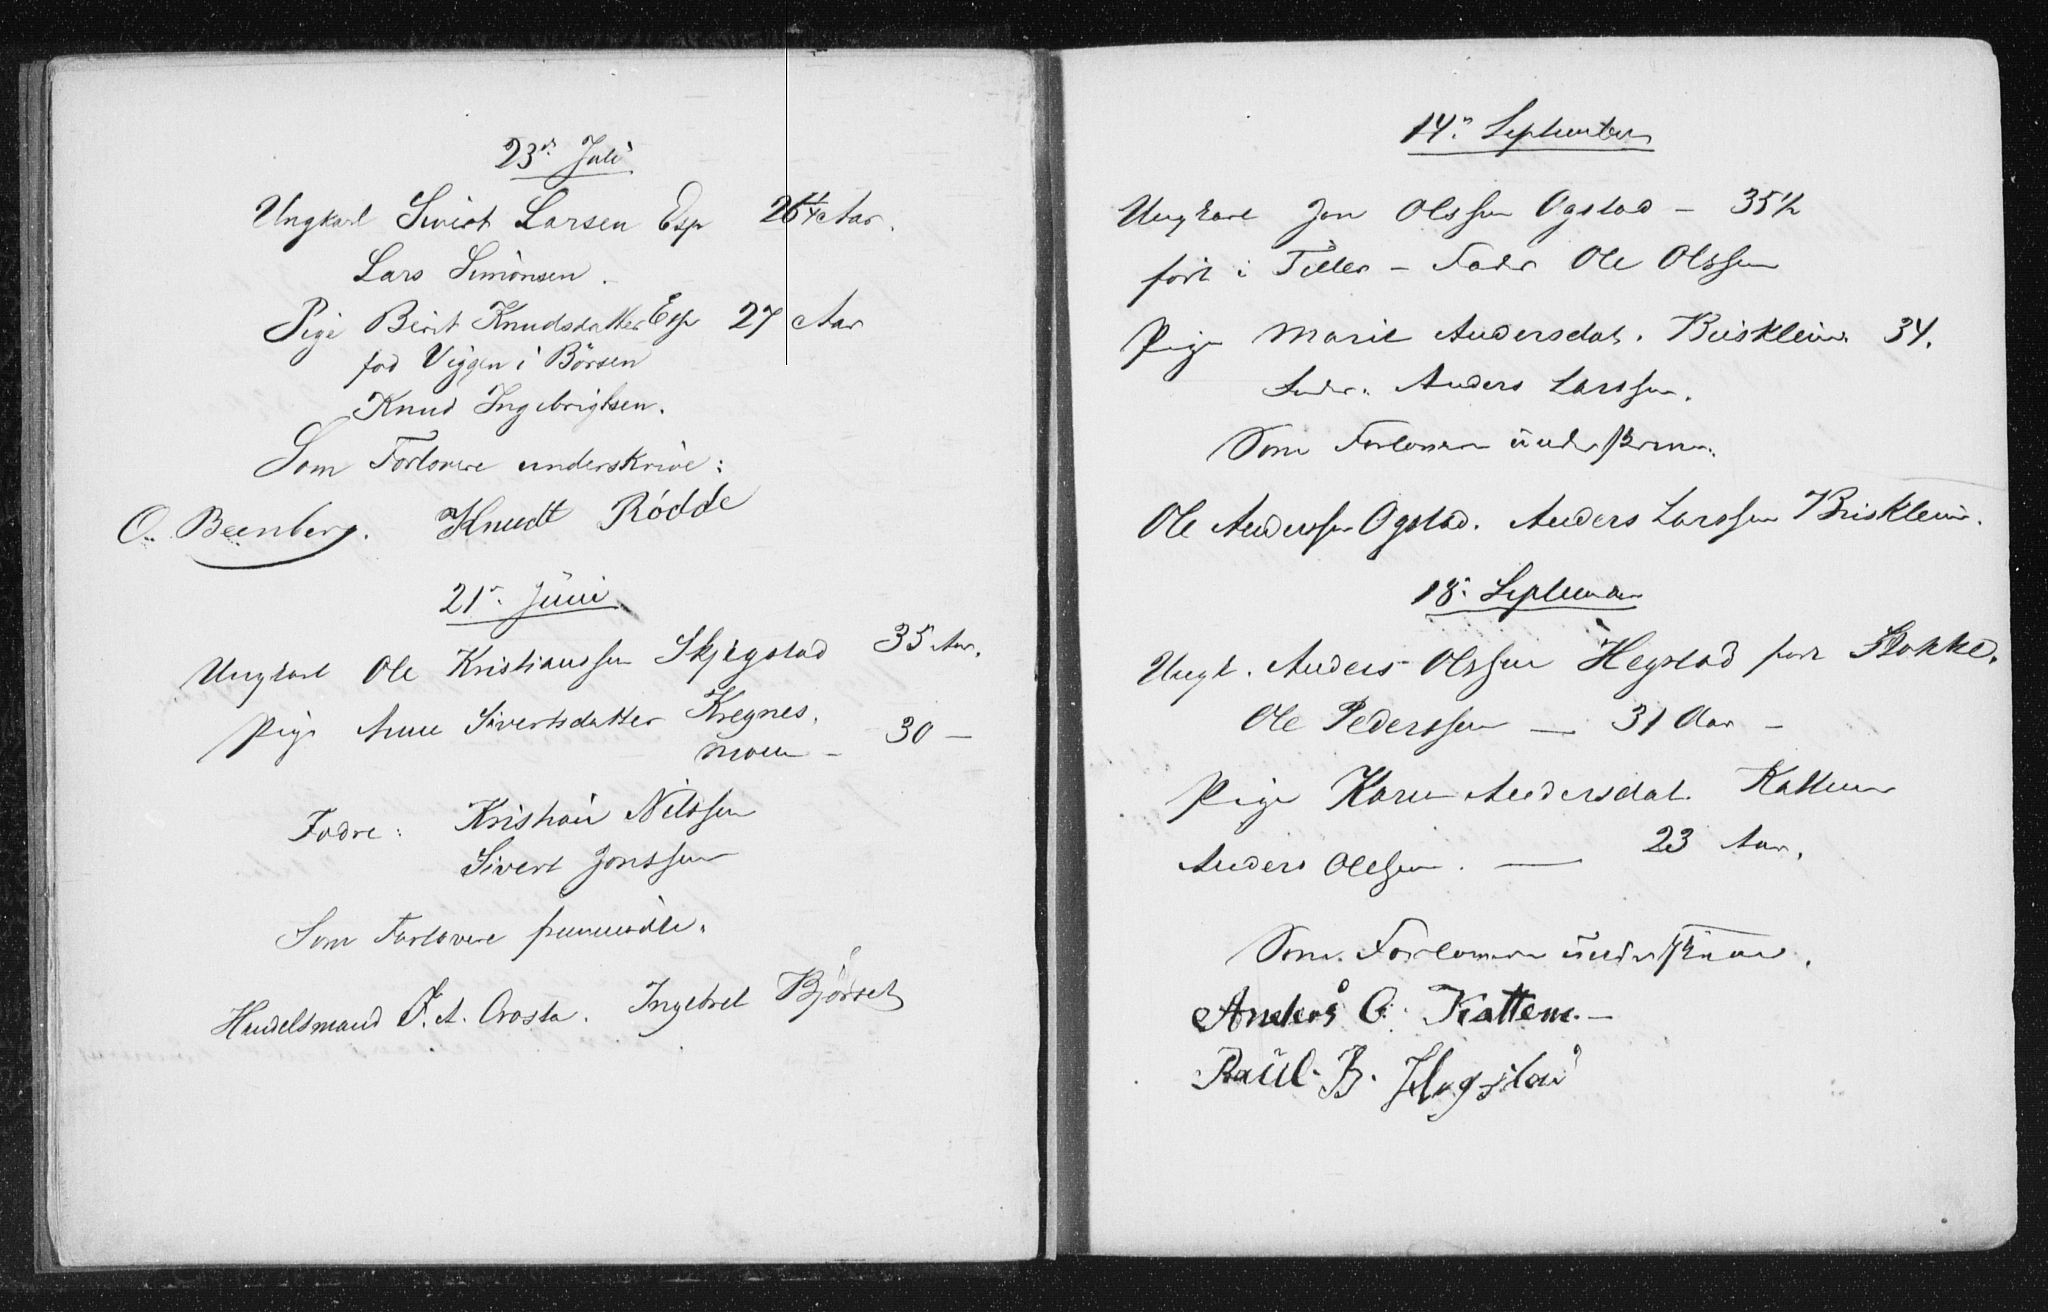 23de Juli
Ungkarl Sivert Larsen Esp 26 1/4 Aar.
Lars Simonsen.
Pige Berit Knudsdatter Esp 27 Aar
fød Viggen i Börsen
Knud Ingebrigtsen.
Som Forlovere underskrive:
O. Beenberg. Knudt Rödde
21de Juni
Ungkarl Ole Kristianssen Skjegstad 35 Aar.
Pige Anne Sivertsdatter Kregnes
moen – 30 –
Fædre: Kristian Nilssen
Sivert Jonssen
Som Forlovere fremmødte.
Handelsmand J. A. Crosta. Ingebret Bjørset
14de September
Ungkarl Jon Olssen Ogstad – 35 1/2
født i Tiller – Fader Ole Olssen
Pige Marit Andersdat. Briskleiv. 34.
Fader. Anders Larssen.
Som Forlovere underskriver.
Ole Anderssen Ogstad. Anders Larssen Briskleiv.
18de September
Ungk. Anders Olssen Hegstad født Stokke.
Ole Pederssen — 31 Aar –
Pige Karen Andersdat. Kattem
23 Aar.
Anders Olssen. —
Som Forlovere underskriver.
Anders O. Kattem. –
Paul. B. Hegstad